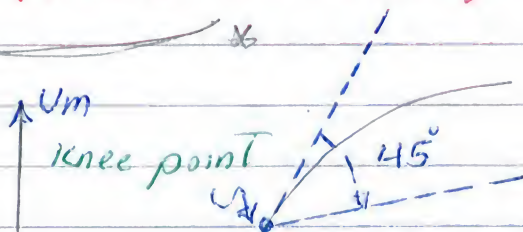 Um
Knee point
45°